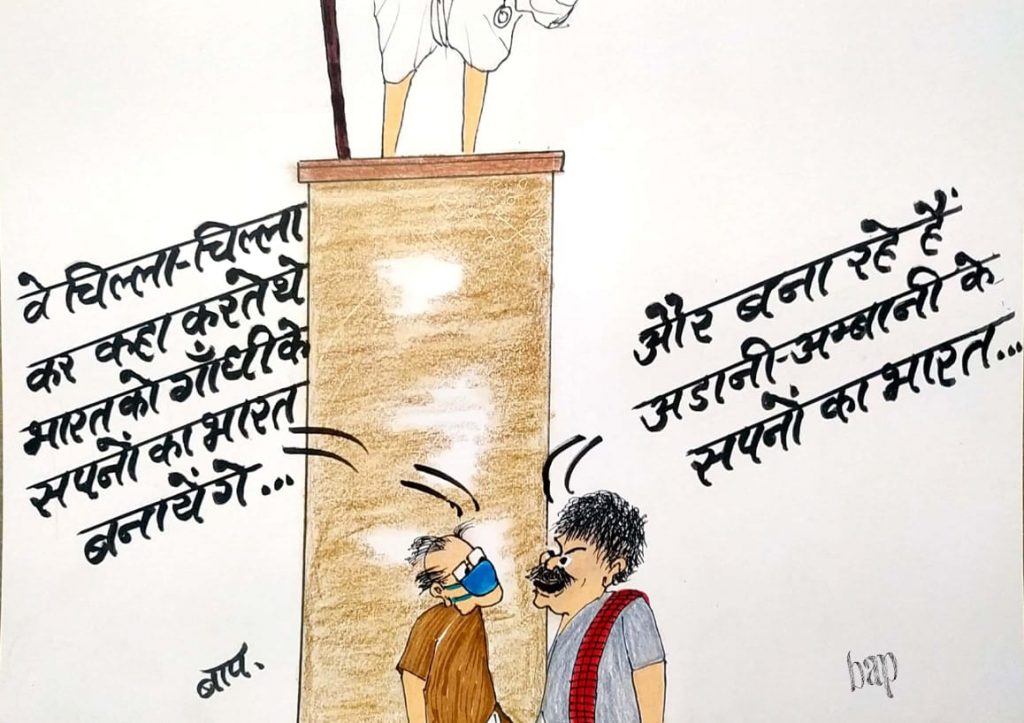 वे चिल्ला-चिल्ला
कर कहा करते थे
भारत को गाँधी के
सपनों का भारत
बनायेंगे...
और बना रहे हैं
अडानी-अम्बानी के
सपनों का भारत...
बाप.
bap